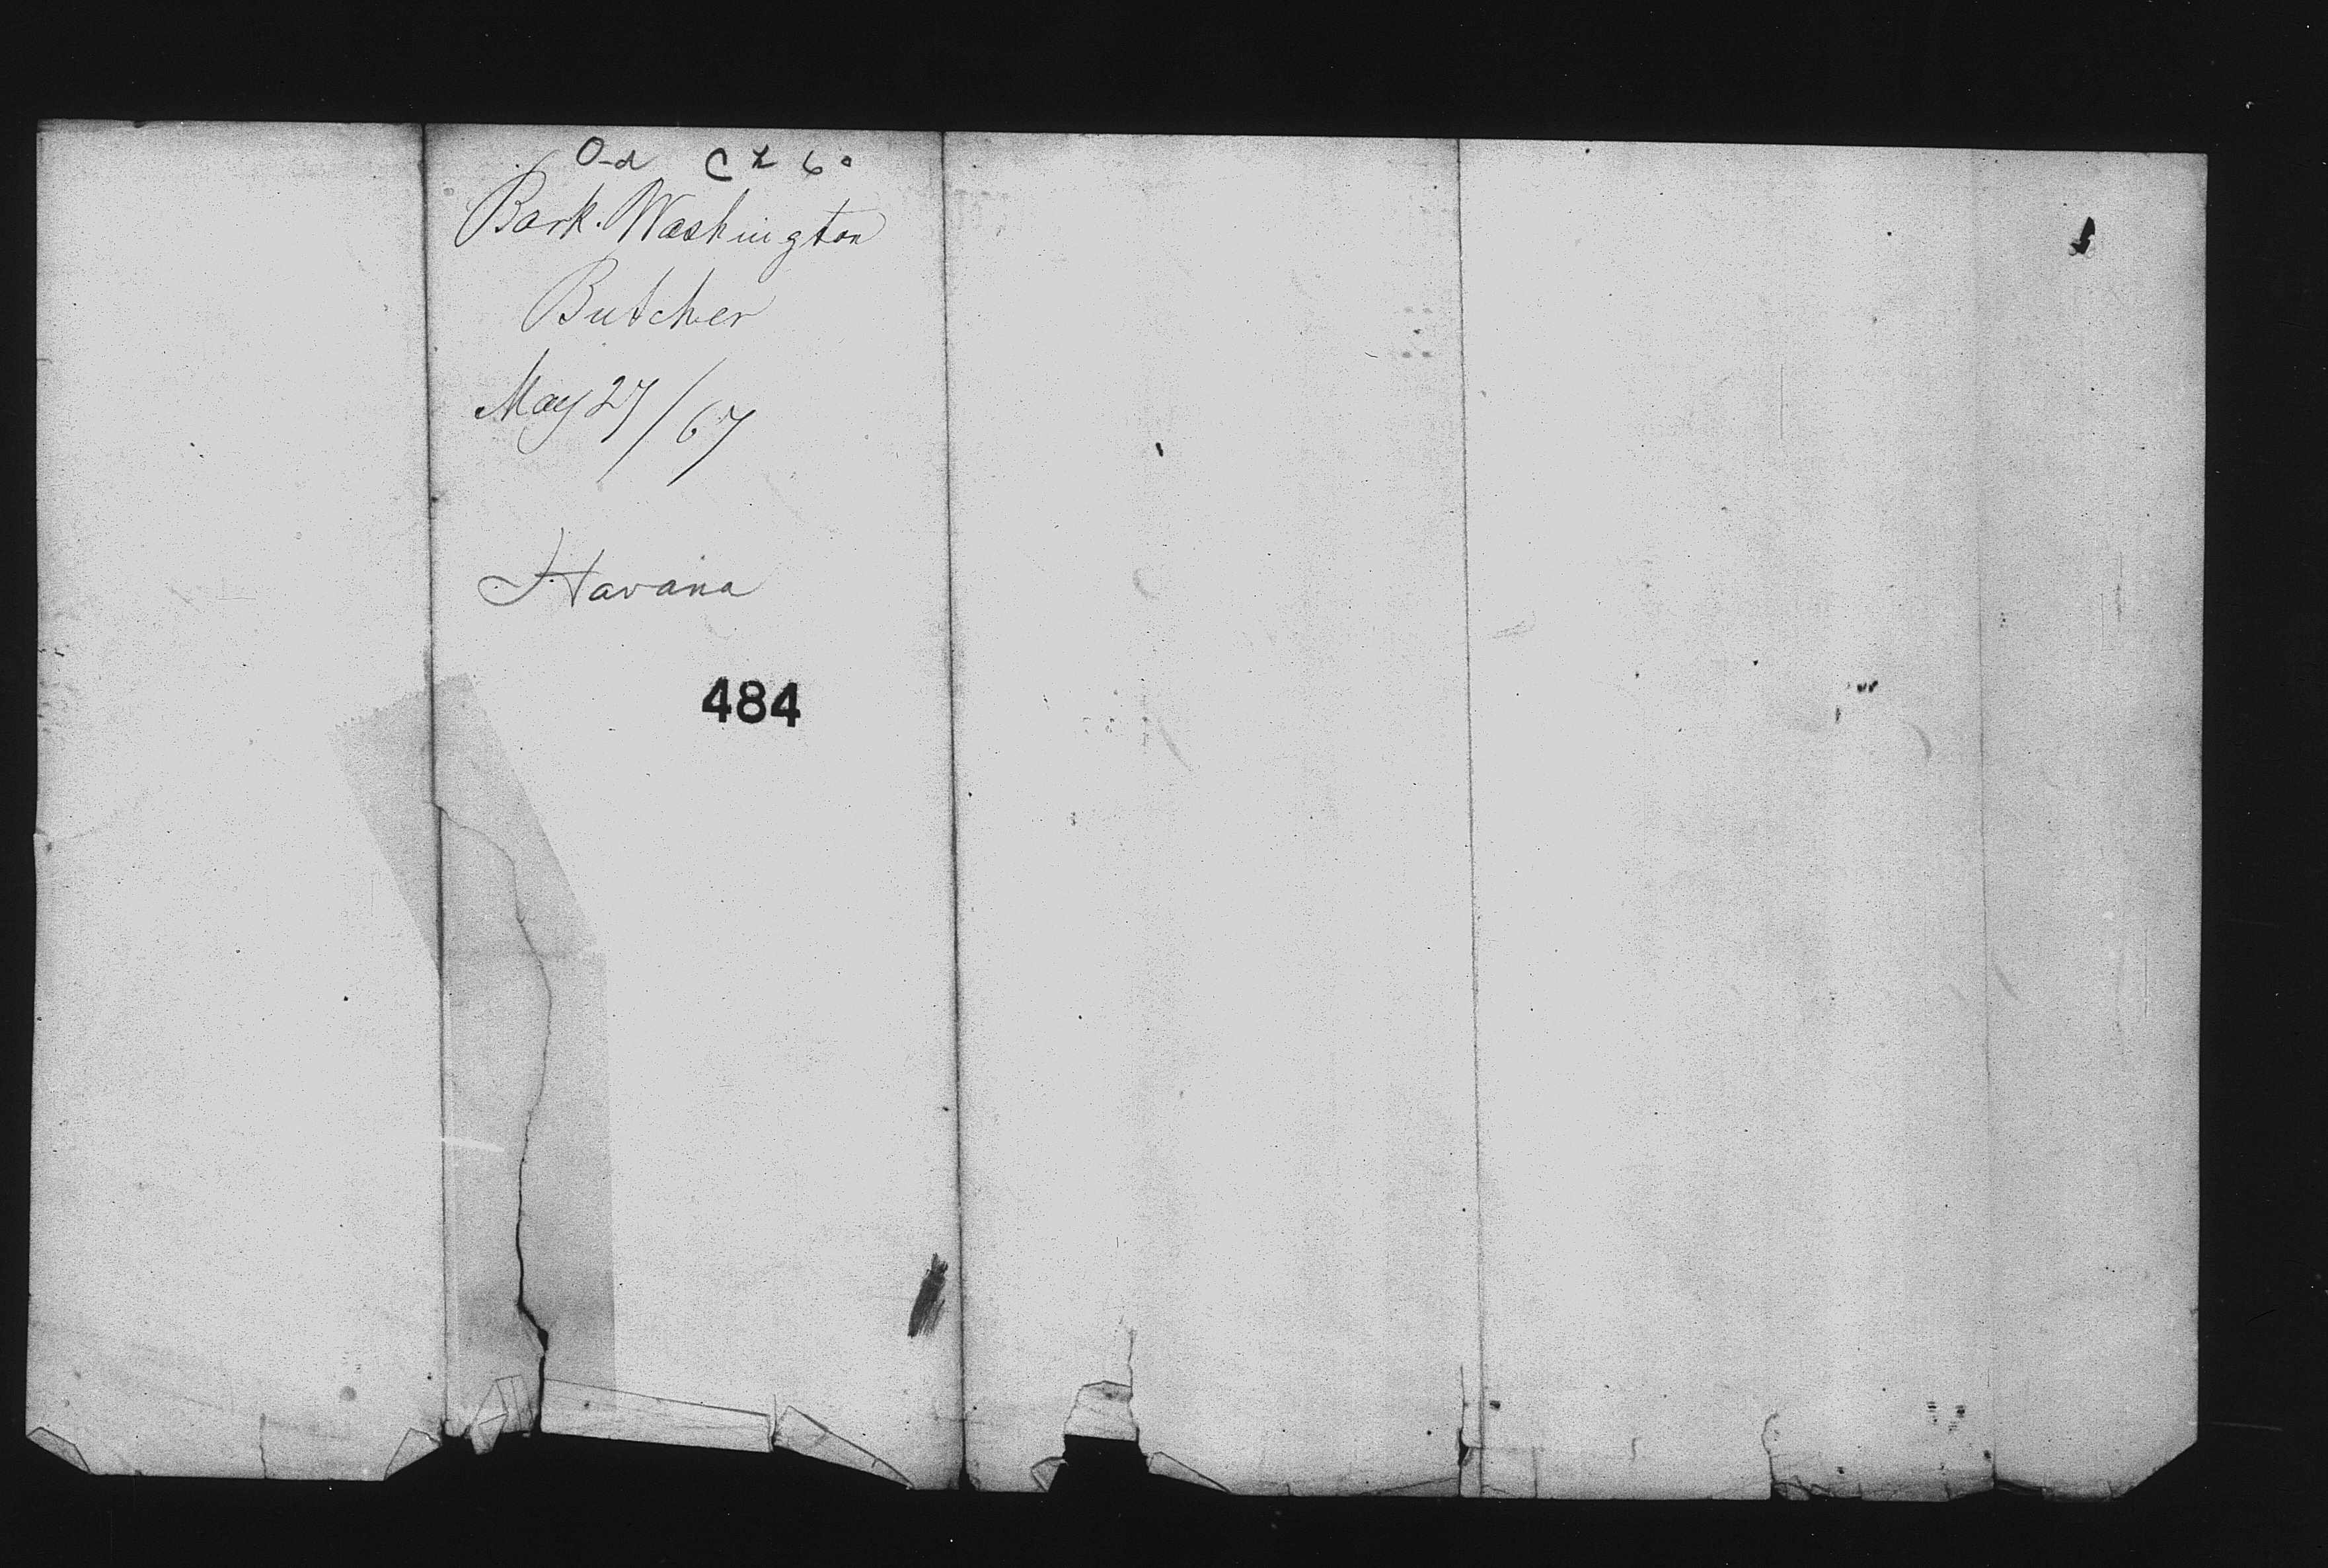 Bark. Washington
Butcher
May 27/67
Havana
484